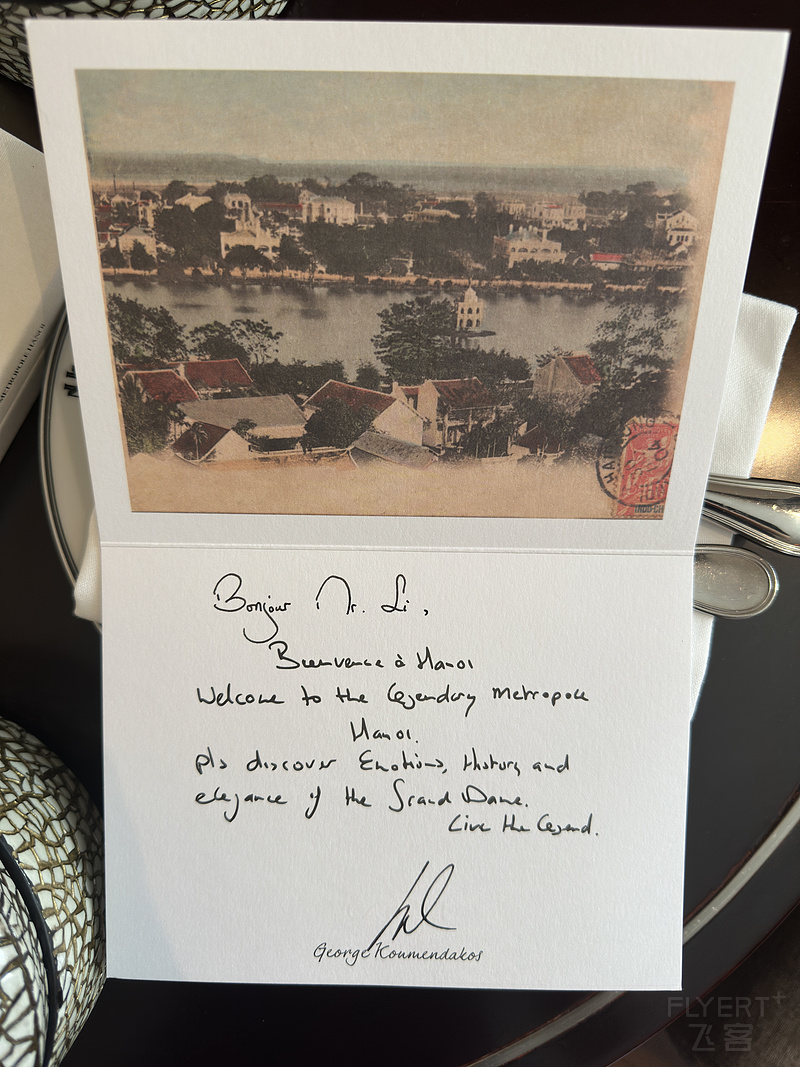 METROPOLE HANOI
HAI
INDO-CH
Bonjour Mr. Li,
Bienvenue à Hanoi
Welcome to the legendary Metropole
Hanoi.
pls discover Emotions, History and
elegance of the Grand Dame.
Live the legend.
George Koumendakos
FLYERT+
飞客